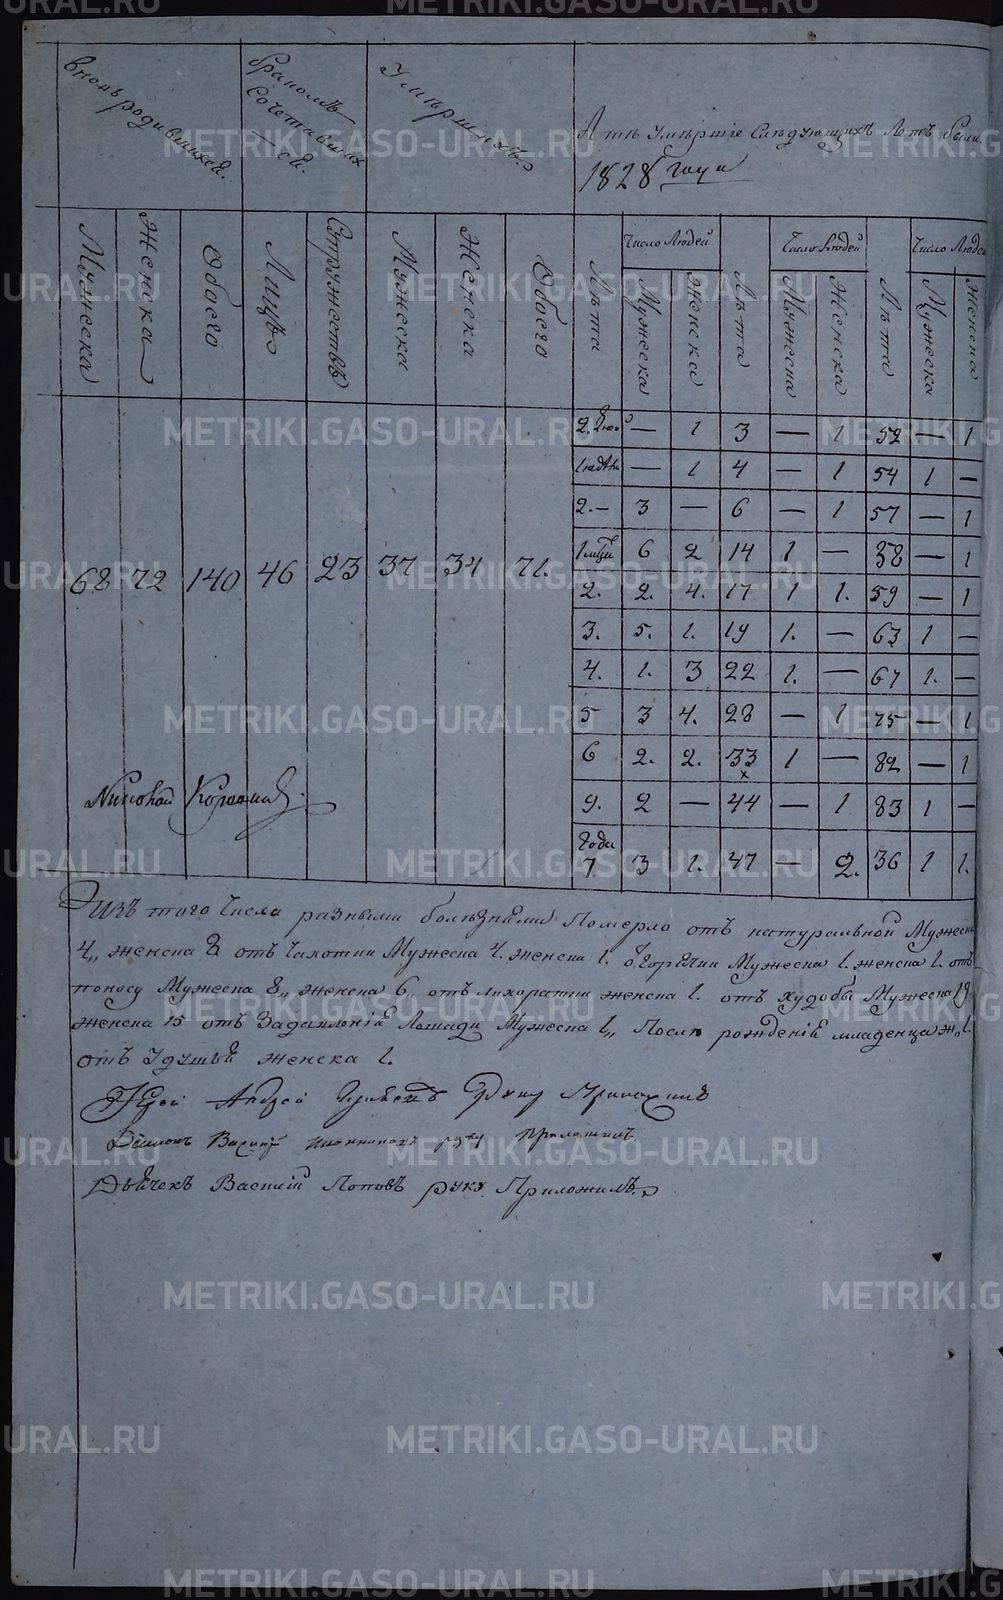 вновь родившихся.
бракомъ сочетавших ся.
Умершихъ.
А тѣ Умершіе Слѣдующихъ Лѣтъ были
1828 года
Мужеска Женска Обоего Лицъ Супружествъ Мужеска Женска Обоего
Число Людей Число Людей Число Людей
Лѣта Мужеска Женска Лѣта Мужеска Женска Лѣта Мужеска Женска
68 72 140 46 23 37 34 71.
2. — 1 3 — 1 52 — 1
— 1 4 — 1 54 1 —
2. – 3 — 6 — 1 57 — 1
1 6 2 14 1 — 58 — 1
2. 2. 4. 17 1 1. 59 — 1
3. 5. 1. 19 1. — 63 1 —
4. 1. 3 22 1. — 67 1. —
5 3 4. 28 — 1 75 — 1
6 2. 2. 33 1 — 82 — 1
х
9. 2 — 44 — 1 83 1 —
Года
7 3 1. 47 — 2. 36 1 1.
Изъ того Числа разными болѣзнями Померло отъ натуральной Мужеска
4,, женска 8 отъ Чахотки Мужеска 4. женска 1. Мужеска 1. женска 1. отъ
поносу Мужеска 8,, женска 6,, отъ лихоратки женска 1. отъ худобы Мужеска 19.
женска 15 отъ Задавленія Лошади Мужеска 1,, Послѣ рожденія младенца ж,, 1.
отъ Удушья женска 1.
Іерей Андрей Руку Приложилъ
Василій руку Приложилъ
Дьячекъ Василій Поповъ руку Приложилъ
METRIKI.GASO-URAL.RU